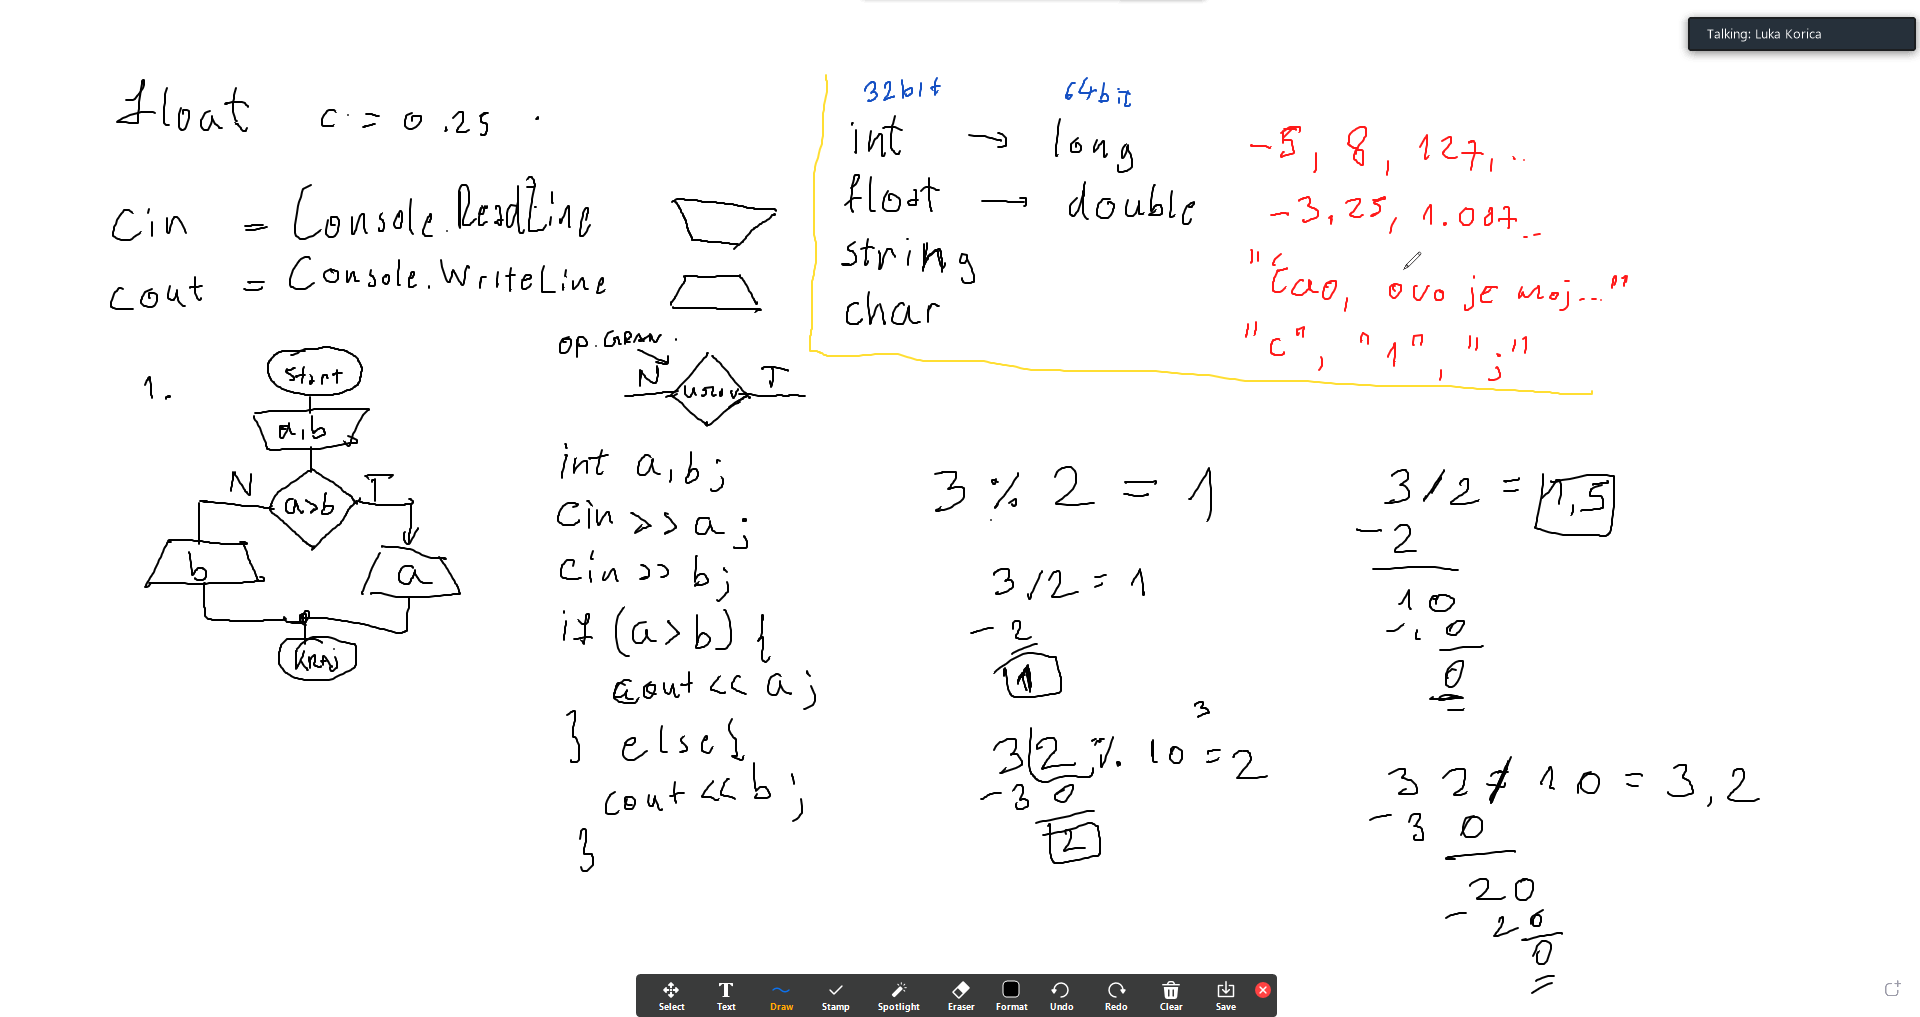 Talking: Luka Korica
float c = 0.25
cin = Console.ReadLine
cout = Console.WriteLine
32bit 64bit
int → long
float → double
string
char
-5, 8, 127, ..
-3.25, 1.007..
"Ćao, ovo je moj..."
"c", "1", "j"
1.
Start
a,b
N a>b T
b a
KRAJ
OP. GRAN.
N uslov T
int a,b;
cin >> a;
cin >> b;
if (a>b) {
cout << a;
} else {
cout << b;
}
3 % 2 = 1
3/2 = 1
-2
1
3
32 % 10 = 2
-30
2
3/2 = 1,5
-2
10
0
0
32/10 = 3,2
-30
20
-20
0
Select Text Draw Stamp Spotlight Eraser Format Undo Redo Clear Save